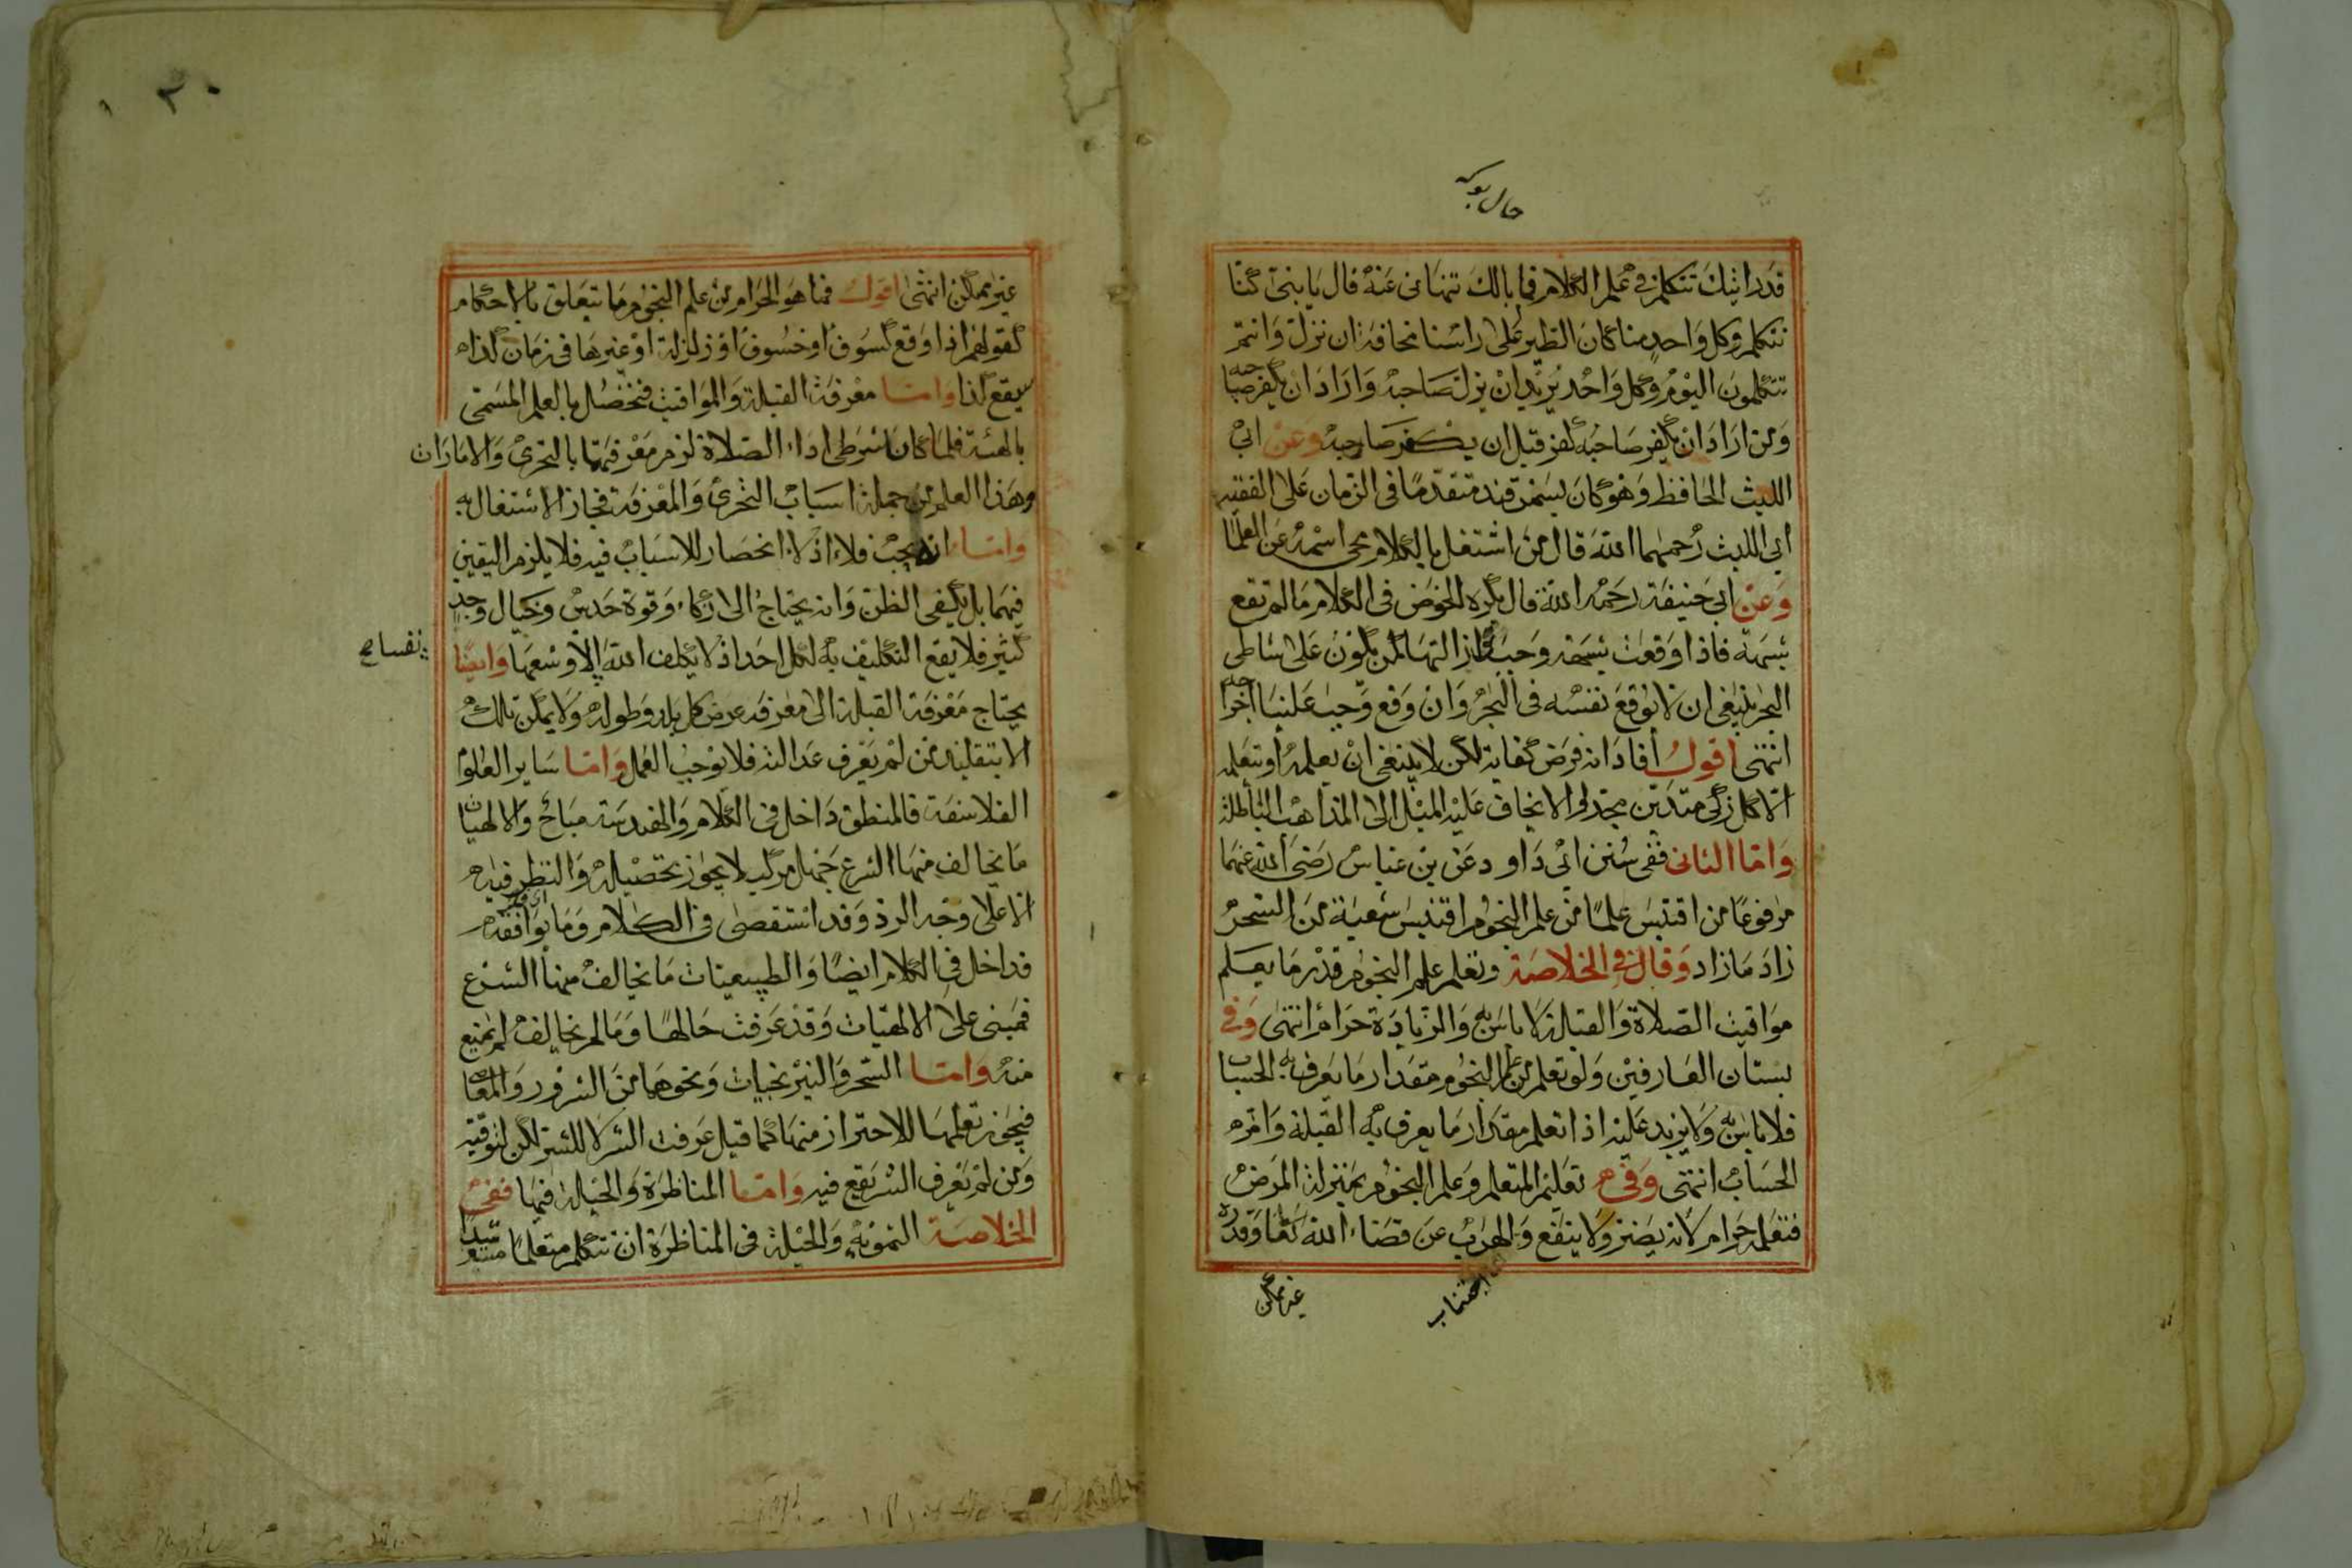 حال بوكه
قد رايتك تتكلم في علم الكلام فما بالك تنهاني عنه قال يا بني كنا
نتكلم وكل واحد منا كان الطير على راسنا مخافة ان نزل وانتم
تتكلمون اليوم وكل واحد يريد ان يزل صاحبه واراد ان يكفر صاحبه
ومن اراد ان يكفر صاحبه كفر قبل ان يكفر صاحبه وعن ابي
الليث الحافظ وهو كان بسمرقند متقدما في الزمان على الفقيه
ابي الليث رحمهما الله قال من اشتغل بالكلام محي اسمه عن العلماء
وعن ابي حنيفة رحمه الله قال يكره الخوض في الكلام ما لم تقع
شبهة فاذا وقعت شبهة وجب ازالتها كمن يكون على شاطئ
البحر ينبغي ان لا يوقع نفسه في البحر وان وقع وجب علينا اخراجه
انتهى اقول افاد انه فرض كفاية لكن لا ينبغي ان يعلمه او يتعلمه
الا كل زكي متدين مجد لولا لا يخاف عليه الميل الى المذاهب الباطلة
واما الثاني ففي سنن ابي داود عن بن عباس رضي الله عنهما
مرفوعا من اقتبس علما من علم النجوم اقتبس شعبة من السحر
زاد ما زاد وقال في الخلاصة وتعلم علم النجوم قدر ما يعلم
مواقيت الصلاة والقبلة لا باس به والزيادة حرام انتهى وفي
بستان العارفين ولو تعلم من علم النجوم مقدار ما يعرف به الحساب
فلا باس به ولا يزيد عليه اذا تعلم مقدار ما يعرف به القبلة وامره
الحساب انتهى وفي تعليم المتعلم وعلم النجوم بمنزلة المرض
فتعلمه حرام لانه يضر ولا ينفع والهرب عن قضاء الله تعالى وقدره
غير ممكن
اى اجتناب
غير ممكن انتهى اقول فما هو الحرام من علم النجوم ما يتعلق بالاحكام
كقولهم اذا وقع كسوف او خسوف او زلزلة او غيرها في زمان كذا
سيقع كذا واما معرفة القبلة والمواقيت فتحصل بالعلم المسمى
بالهيئة فلما كان شرطي اداء الصلاة لزم معرفتها بالتحري والامارات
وهذا العلم من جملة اسباب التحري والمعرفة فجاز الاشتغال به
واما انه يجب فلا اذ لا انحصار للاسباب فيه فلا يلزم اليقين
فيهما بل يكفي الظن وانه يحتاج الى ذكاء وقوة حدس وخيال وجد
كثير فلا يقع التكليف به لكل احد اذ لا يكلف الله الا وسعها وايضا
نفسا صح
يحتاج معرفة القبلة الى معرفة عرض كل بلد وطوله ولا يمكن تلك
الا بتقليد من لم يعرف عدالته فلا يوجب العمل واما ساير العلوم
الفلاسفة فالمنطق داخل في الكلام والهندسة مباح والالهيات
ما يخالف منها الشرع جهل مركب لا يجوز تحصيله والنظر فيه
الا على وجه الرد وقد استقصى في الكلام وما يوافقه
فداخل في الكلام ايضا والطبيعيات ما يخالف منها الشرع
فمبنى على الالهيات وقد عرفت حالها وما لم يخالف لم يمنع
منه واما السحر والنيرنجيات ونحوها من الشرور والمعاصي
فيجوز تعلمها للاحتراز منها كما قيل عرفت الشر لا للشر لكن لتوقيه
ومن لم يعرف الشر يقع فيه واما المناظرة والحيلة فيها ففي
الخلاصة التمويه والحيلة في المناظرة ان تتكلم متعلما